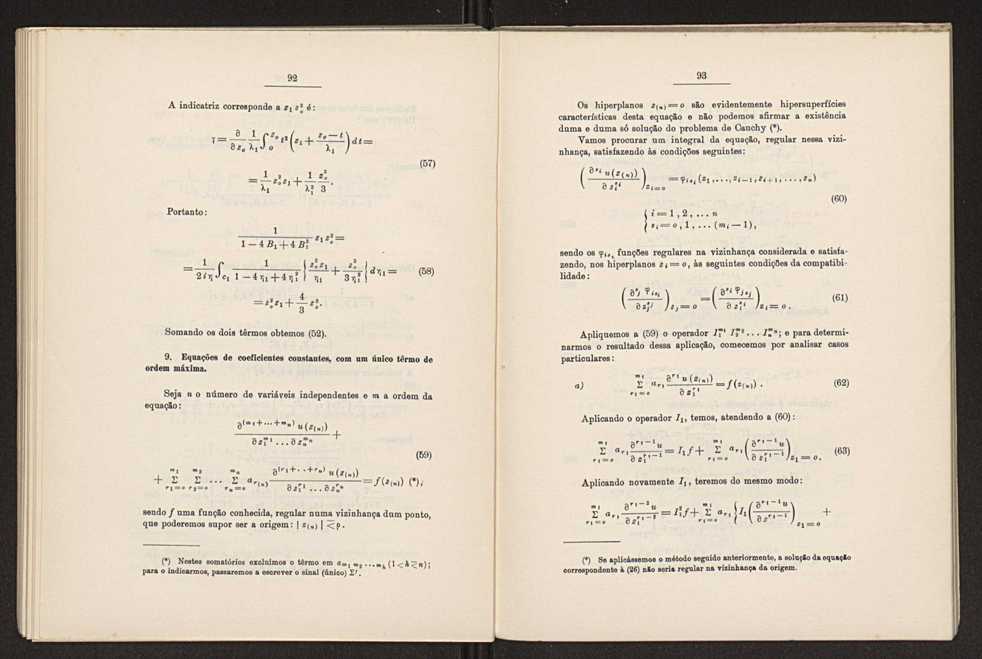 92
A indicatriz corresponde a z₁ z₀² é:
ī = ∂/∂z₀ 1/λ₁ ∫₀^{z₀} t² (z₁ + (z₀ − t)/λ₁) dt =
(57)
= 1/λ₁ z₀² z₁ + 1/λ₁² z₀³/3.
Portanto:
1/(1 − 4 B₁ + 4 B₁²) z₁ z₀² =
= 1/(2 i η) ∫_{c₁} 1/(1 − 4 η₁ + 4 η₁²) { z₀² z₁/η₁ + z₀³/(3 η₁²) } d η₁ = (58)
= z₀² z₁ + 4/3 z₀³.
Somando os dois têrmos obtemos (52).
9. Equações de coeficientes constantes, com um único têrmo de
ordem máxima.
Seja n o número de variáveis independentes e m a ordem da
equação:
∂^{(m₁+...+mₙ)} u (z₍ₙ₎) / ∂z₁^{m₁} ... ∂zₙ^{mₙ} +
(59)
+ Σ_{r₁=o}^{m₁} Σ_{r₂=o}^{m₂} ... Σ_{rₙ=o}^{mₙ} a_{r₍ₙ₎} ∂^{(r₁+..+rₙ)} u (z₍ₙ₎) / ∂z₁^{r₁} ... ∂zₙ^{rₙ} = f (z₍ₙ₎) (*),
sendo f uma função conhecida, regular numa vizinhança dum ponto,
que poderemos supor ser a origem: | z₍ₙ₎ | ≤ ρ.
(*) Nestes somatórios excluímos o têrmo em a_{m₁ m₂ ... m_h} (1 < h ≤ n);
para o indicarmos, passaremos a escrever o sinal (único) Σ′.
93
Os hiperplanos z₍ₙ₎ = o são evidentemente hipersuperfícies
características desta equação e não podemos afirmar a existência
duma e duma só solução do problema de Cauchy (*).
Vamos procurar um integral da equação, regular nessa vizi-
nhança, satisfazendo às condições seguintes:
(∂^{sᵢ} u (z₍ₙ₎) / ∂ zᵢ^{sᵢ})_{zᵢ=o} = φ_{i sᵢ} (z₁, ..., z_{i−1}, z_{i+1}, ..., zₙ)
(60)
{ i = 1, 2, ... n
{ sᵢ = o, 1, ... (mᵢ − 1),
sendo os φ_{i sᵢ} funções regulares na vizinhança considerada e satisfa-
zendo, nos hiperplanos zᵢ = o, às seguintes condições da compatibi-
lidade:
(∂^{sⱼ} φ_{i sᵢ} / ∂zⱼ^{sⱼ})_{zⱼ = o} = (∂^{sᵢ} φ_{j sⱼ} / ∂ zᵢ^{sᵢ})_{zᵢ = o}. (61)
Apliquemos a (59) o operador I₁^{m₁} I₂^{m₂} ... Iₙ^{mₙ}; e para determi-
narmos o resultado dessa aplicação, comecemos por analisar casos
particulares:
a) Σ_{r₁=o}^{m₁} a_{r₁} ∂^{r₁} u (z₍ₙ₎) / ∂ z₁^{r₁} = f (z₍ₙ₎). (62)
Aplicando o operador I₁, temos, atendendo a (60):
Σ_{r₁=o}^{m₁} a_{r₁} ∂^{r₁−1} u / ∂ z₁^{r₁−1} = I₁ f + Σ_{r₁=o}^{m₁} a_{r₁} (∂^{r₁−1} u / ∂ z₁^{r₁−1})_{z₁ = o}. (63)
Aplicando novamente I₁, teremos do mesmo modo:
Σ_{r₁=o}^{m₁} a_{r₁} ∂^{r₁−2} u / ∂ z₁^{r₁−2} = I₁² f + Σ_{r₁=o}^{m₁} a_{r₁} { I₁ (∂^{r₁−1} u / ∂ z^{r₁−1})_{z₁ = o} +
(*) Se aplicássemos o método seguido anteriormente, a solução da equação
correspondente à (26) não seria regular na vizinhança da origem.